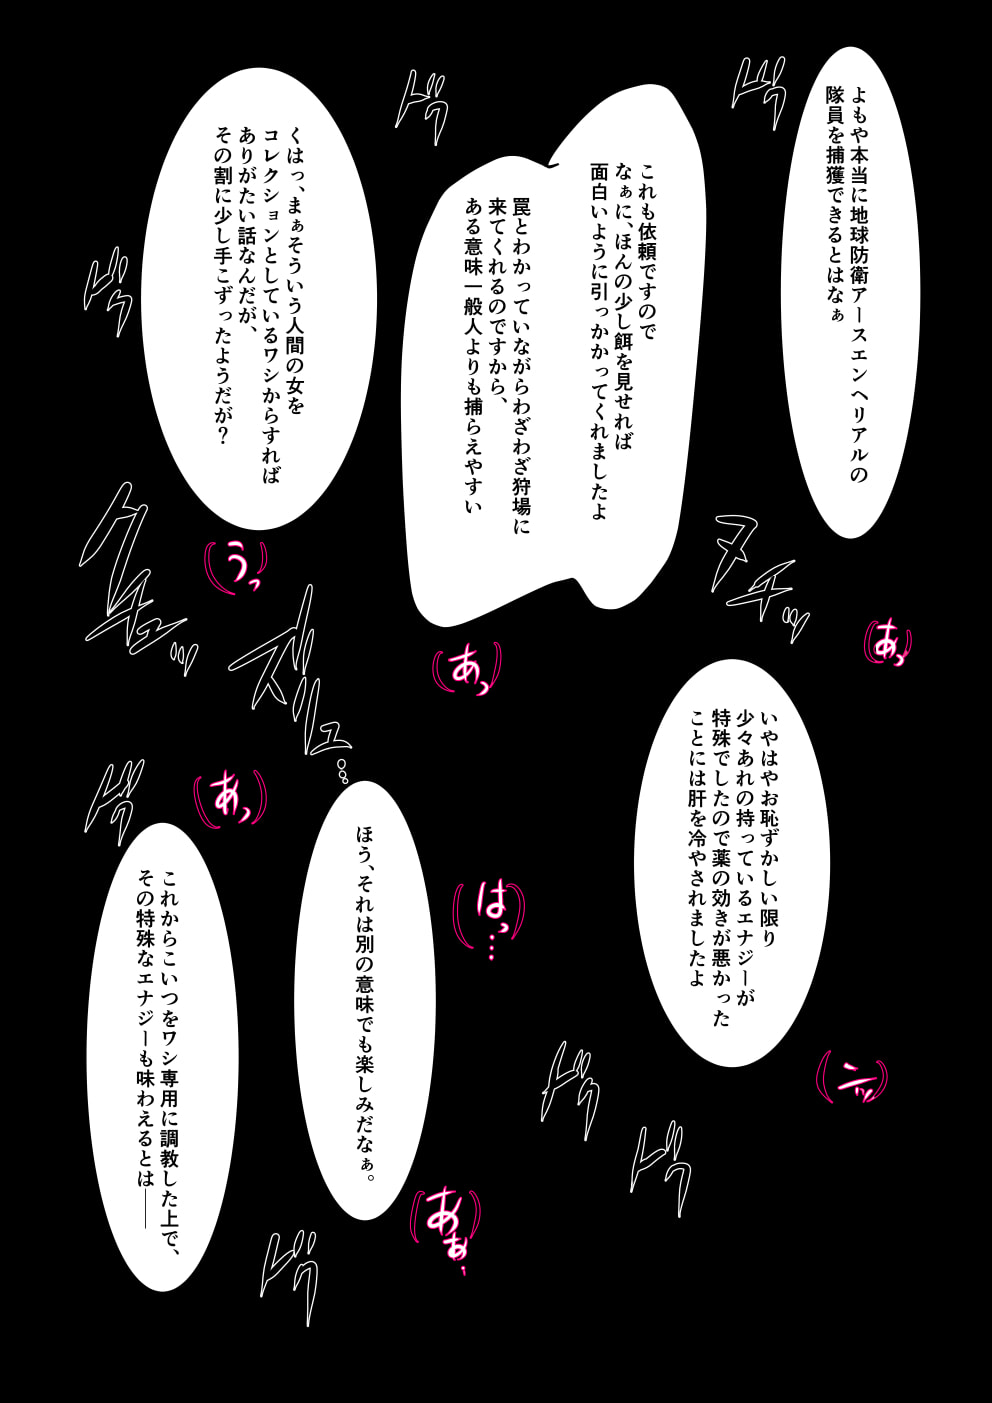 よもや本当に地球防衛アースエンヘリアルの
隊員を捕獲できるとはなぁ
ドヅ
これも依頼ですので
なぁに、ほんの少し餌を見せれば
面白いように引っかかってくれましたよ
罠とわかっていながらわざわざ狩場に
来てくれるのですから、
ある意味一般人よりも捕らえやすい
ドヅ
くはっ、まぁそういう人間の女を
コレクションとしているワシからすれば
ありがたい話なんだが、
その割に少し手こずったようだが?
ドヅ
ヌチッ
(あっ)
(あっ)
(うっ)
グチュッ
ズリュ…
いやはやお恥ずかしい限り
少々あれの持っているエナジーが
特殊でしたので薬の効きが悪かった
ことには肝を冷やされましたよ
(はっ…)
(あっ)
ドヅ
ほう、それは別の意味でも楽しみだなぁ。
これからこいつをワシ専用に調教した上で、
その特殊なエナジーも味わえるとは――
ドヅ
ドヅ
(あぁ…)
ドヅ